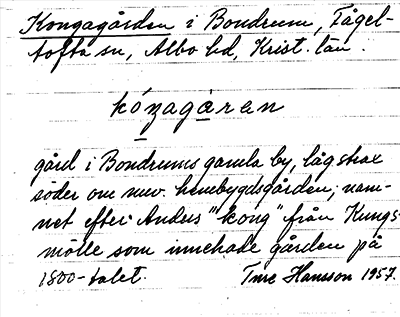 Kongagården i Bondrum, Fågel-
tofta sn, Albo hd, Krist. län.
kóŋagáran
gård i Bondrums gamla by, låg strax
söder om nuv. hembygdsgården; nam-
net efter Anders "kong" från Kungs-
mölle som innehade gården på
1800-talet. Ture Hansson 1957.